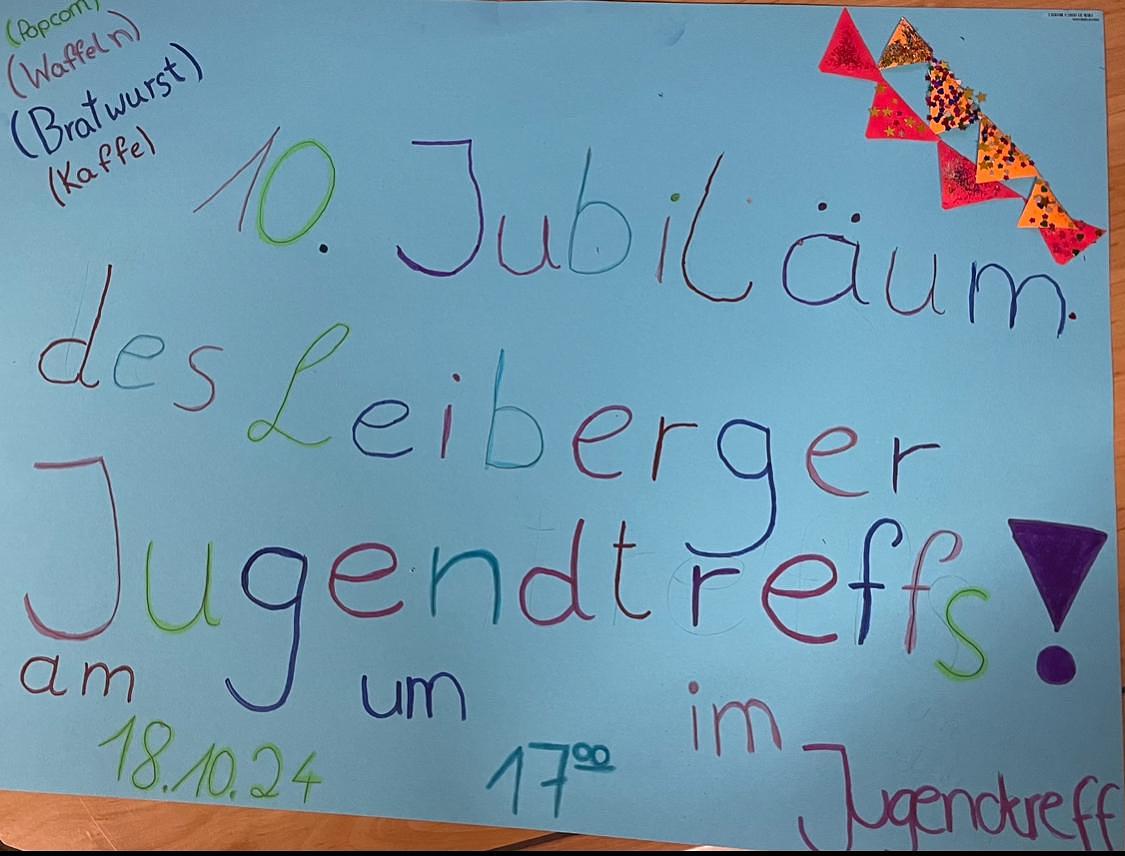 (Popcorn)
(Waffeln)
(Bratwurst)
(Kaffe)
10. Jubiläum
des Leiberger
Jugendtreffs!
am um im
18.10.24 17⁰⁰ Jugendtreff